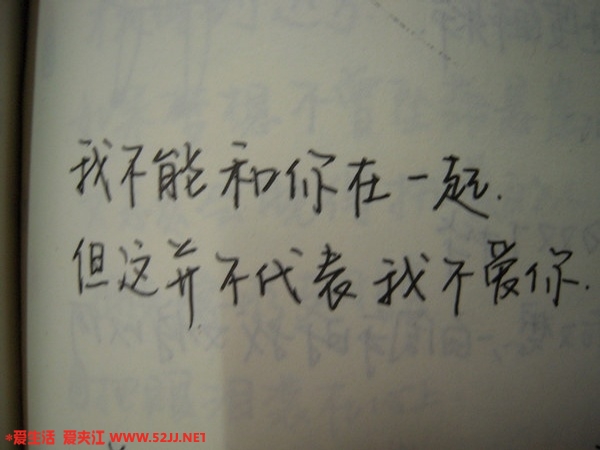 我不能和你在一起.
但这并不代表我不爱你.
*爱生活 爱夹江 WWW.52JJ.NET